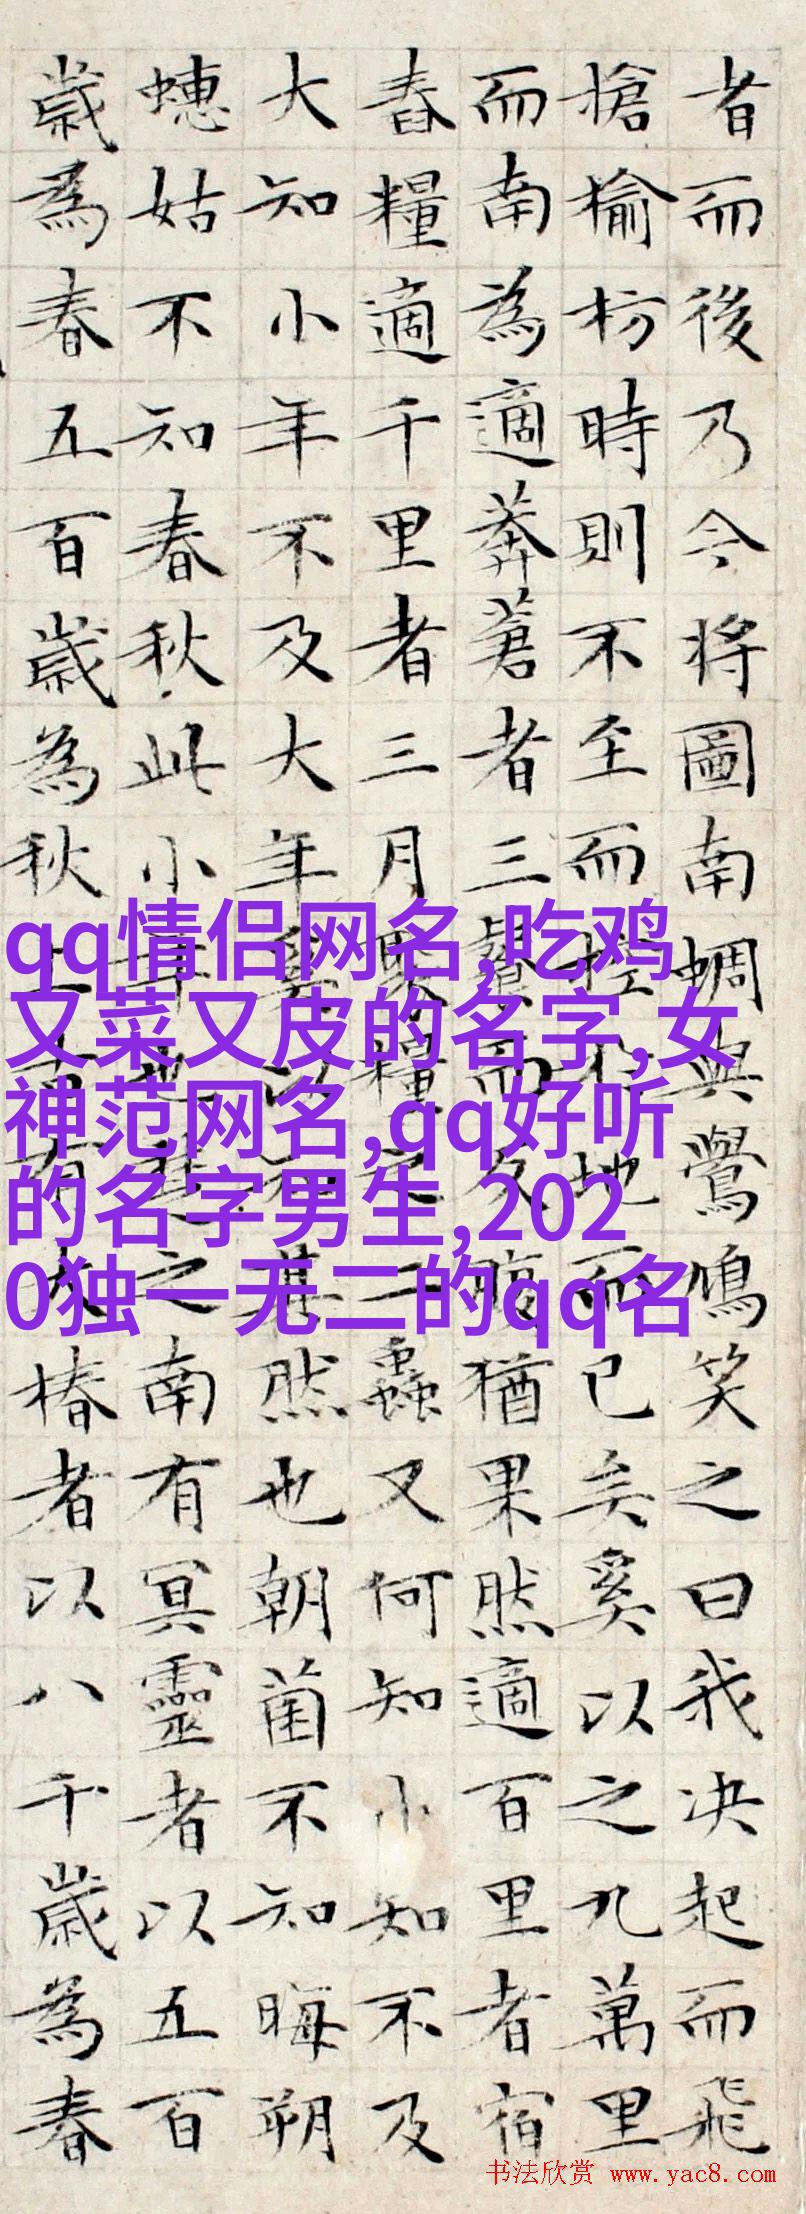 者而後乃今將圖南蜩與鷽鳩笑之曰我决起而飛
搶榆枋時則不至而控於地而已矣奚以之九萬里
而南為適莽蒼者三餐而反腹猶果然適百里者宿
舂糧適千里者三月聚糧之二蟲又何知小知不及
大知小年不及大年奚以知其然也朝菌不知晦朔
蟪姑不知春秋此小年也楚之南有冥靈者以五百
歲為春五百歲為秋上古有大椿者以八千歲為春
qq情侣网名,吃鸡
又菜又皮的名字,女
神范网名,qq好听
的名字男生,202
0独一无二的qq名
书法欣赏 www.yac8.com